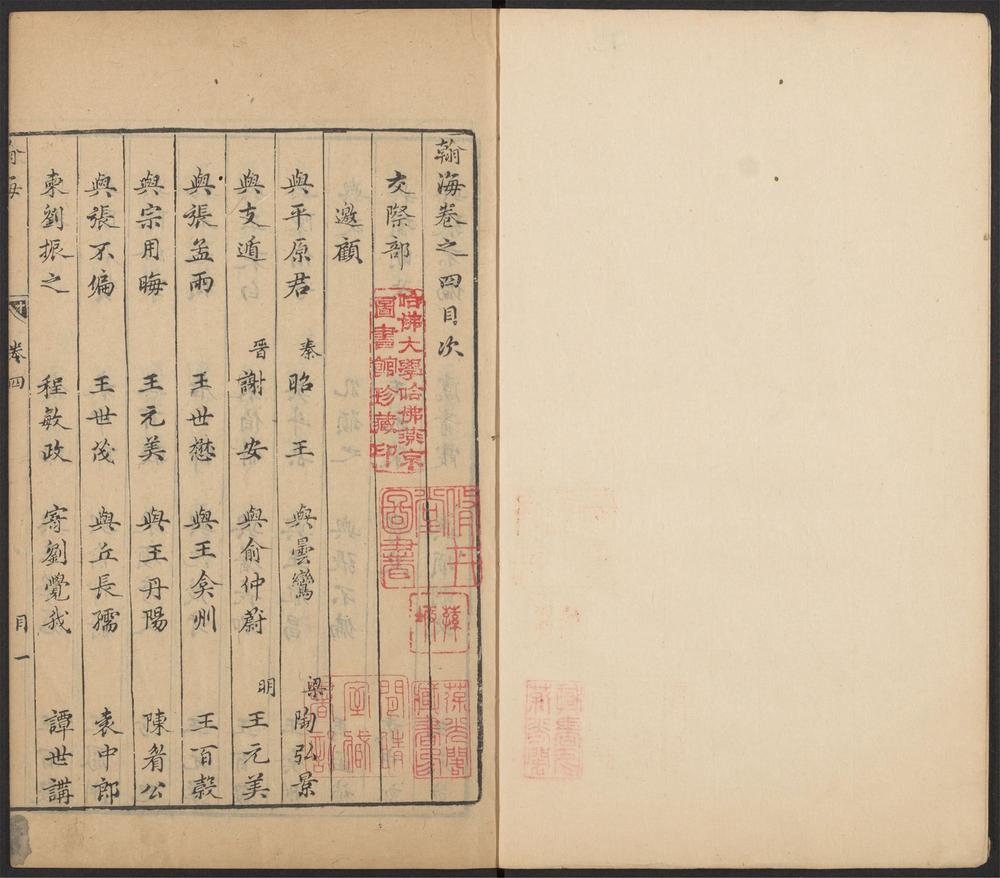 翰海卷之四目次
交際部
邀顧
與平原君 秦昭王 與曇鸞 梁陶弘景
與支遁 晉謝安 與俞仲蔚 明王元美
與張孟雨 王世懋 與王弇州 王百穀
與宗用晦 王元美 與王丹陽 陳眉公
與張不偏 王世茂 與丘長孺 袁中郎
柬劉振之 程敏政 寄劉覺我 譚世講
翰海 卷四 目一
哈佛大學哈佛燕京
圖書館珍藏印